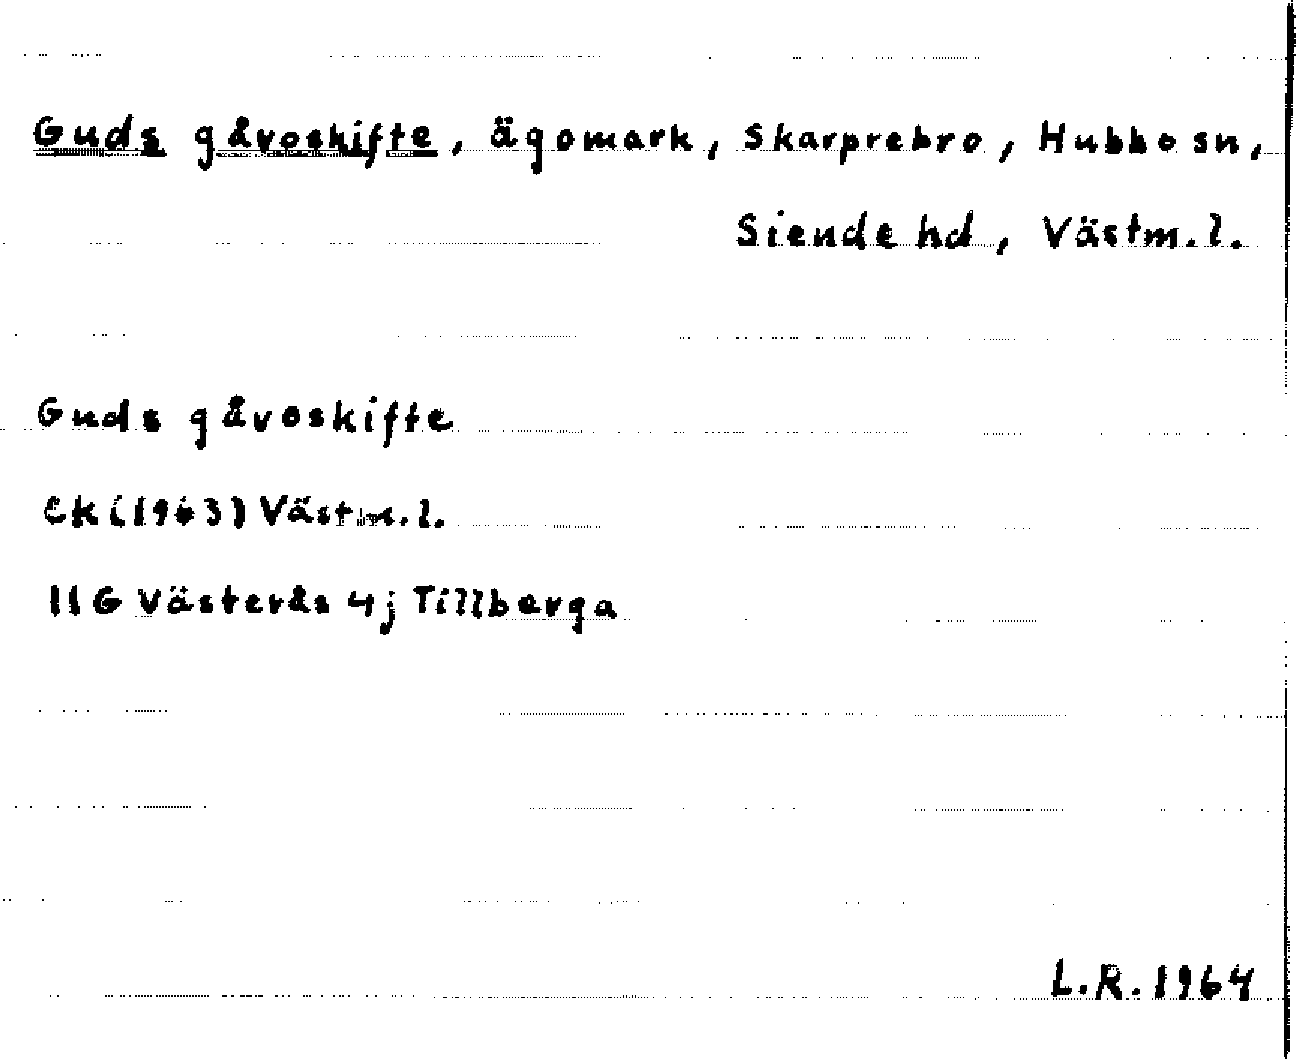 Guds gåvoskifte, ägomark, Skarprebro, Hubbo sn,
Siende hd, Västm.l.
Guds gåvoskifte
EK(1963) Västm.l.
11G Västerås 4j Tillberga
L.R. 1964